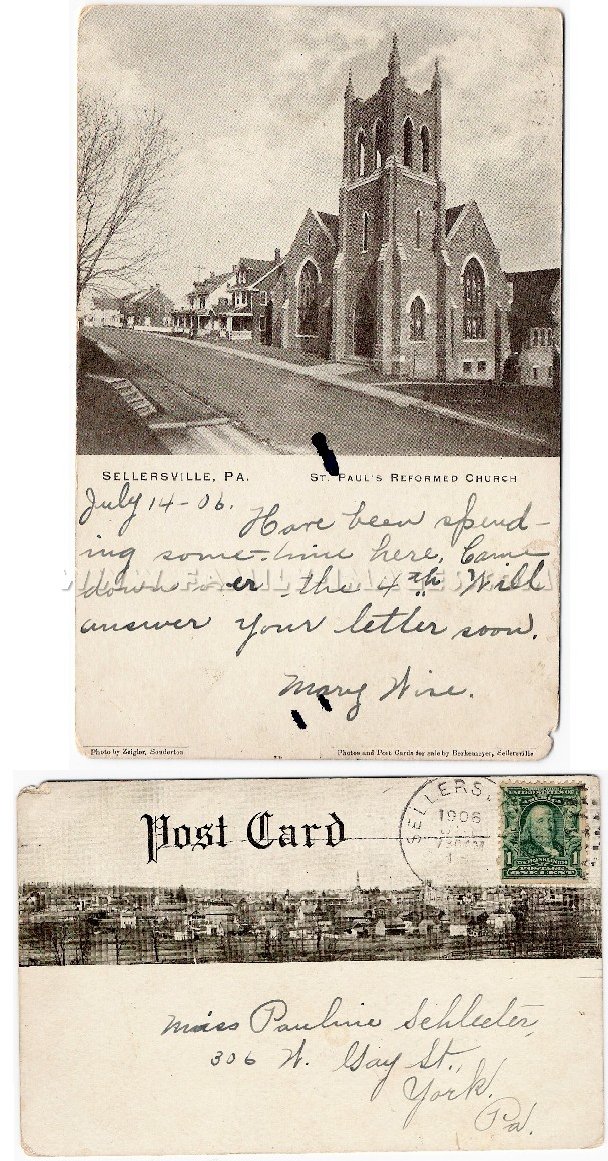 SELLERSVILLE, PA. ST. PAUL'S REFORMED CHURCH
July 14-06.
Have been spend-
ing some-time here. Came
down er the 4th Will
answer your letter soon.
Mary Wise.
Photo by Zeigler, Souderton
Photos and Post Cards for sale by Berkemeyer, Sellersville
Post Card
SELLERS
1906
UNITED STATES OF AMERICA
1 1
POSTAGE
ONE CENT
Miss Pauline Schleeter,
306 W. Gay St.,
York.
Pa.